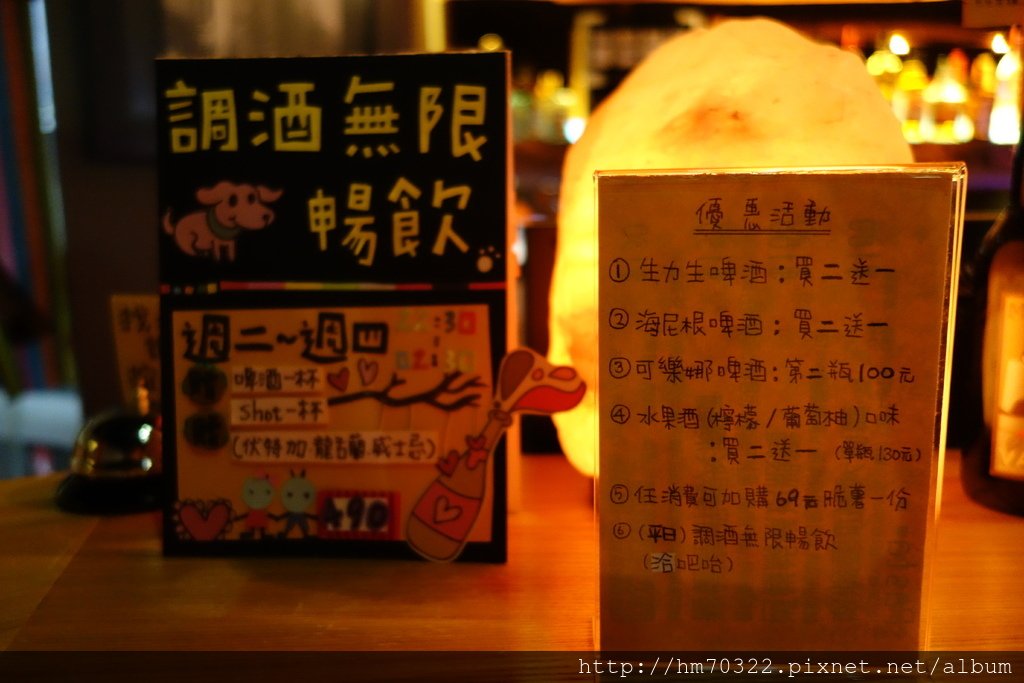 調酒無限
暢飲
週二~週四
啤酒一杯
Shot一杯
(伏特加.龍舌蘭.威士忌)
490
優惠活動
① 生力生啤酒:買二送一
② 海尼根啤酒:買二送一
③ 可樂娜啤酒:第二瓶100元
④ 水果酒(檸檬/葡萄柚)口味
:買二送一 (單瓶130元)
⑤ 任消費可加購69元脆薯一份
⑥ (平日)調酒無限暢飲
(洽吧台)
http://hm70322.pixnet.net/album